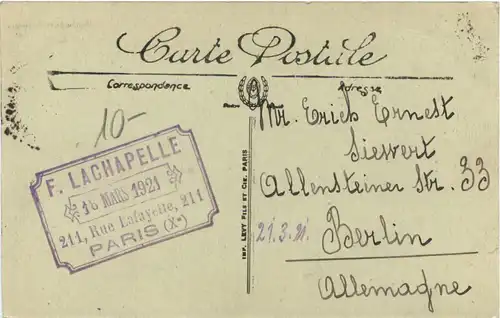 Carte Postale
Correspondance
Adresse
10-
F. LACHAPELLE
16 MARS 1921
211, Rue Lafayette, 211
PARIS (Xe)
IMP. LEVY FILS ET CIE. PARIS
Mr. Erich Ernest
Siewert
Allensteiner Str. 33
21.3.21.
Berlin
Allemagne